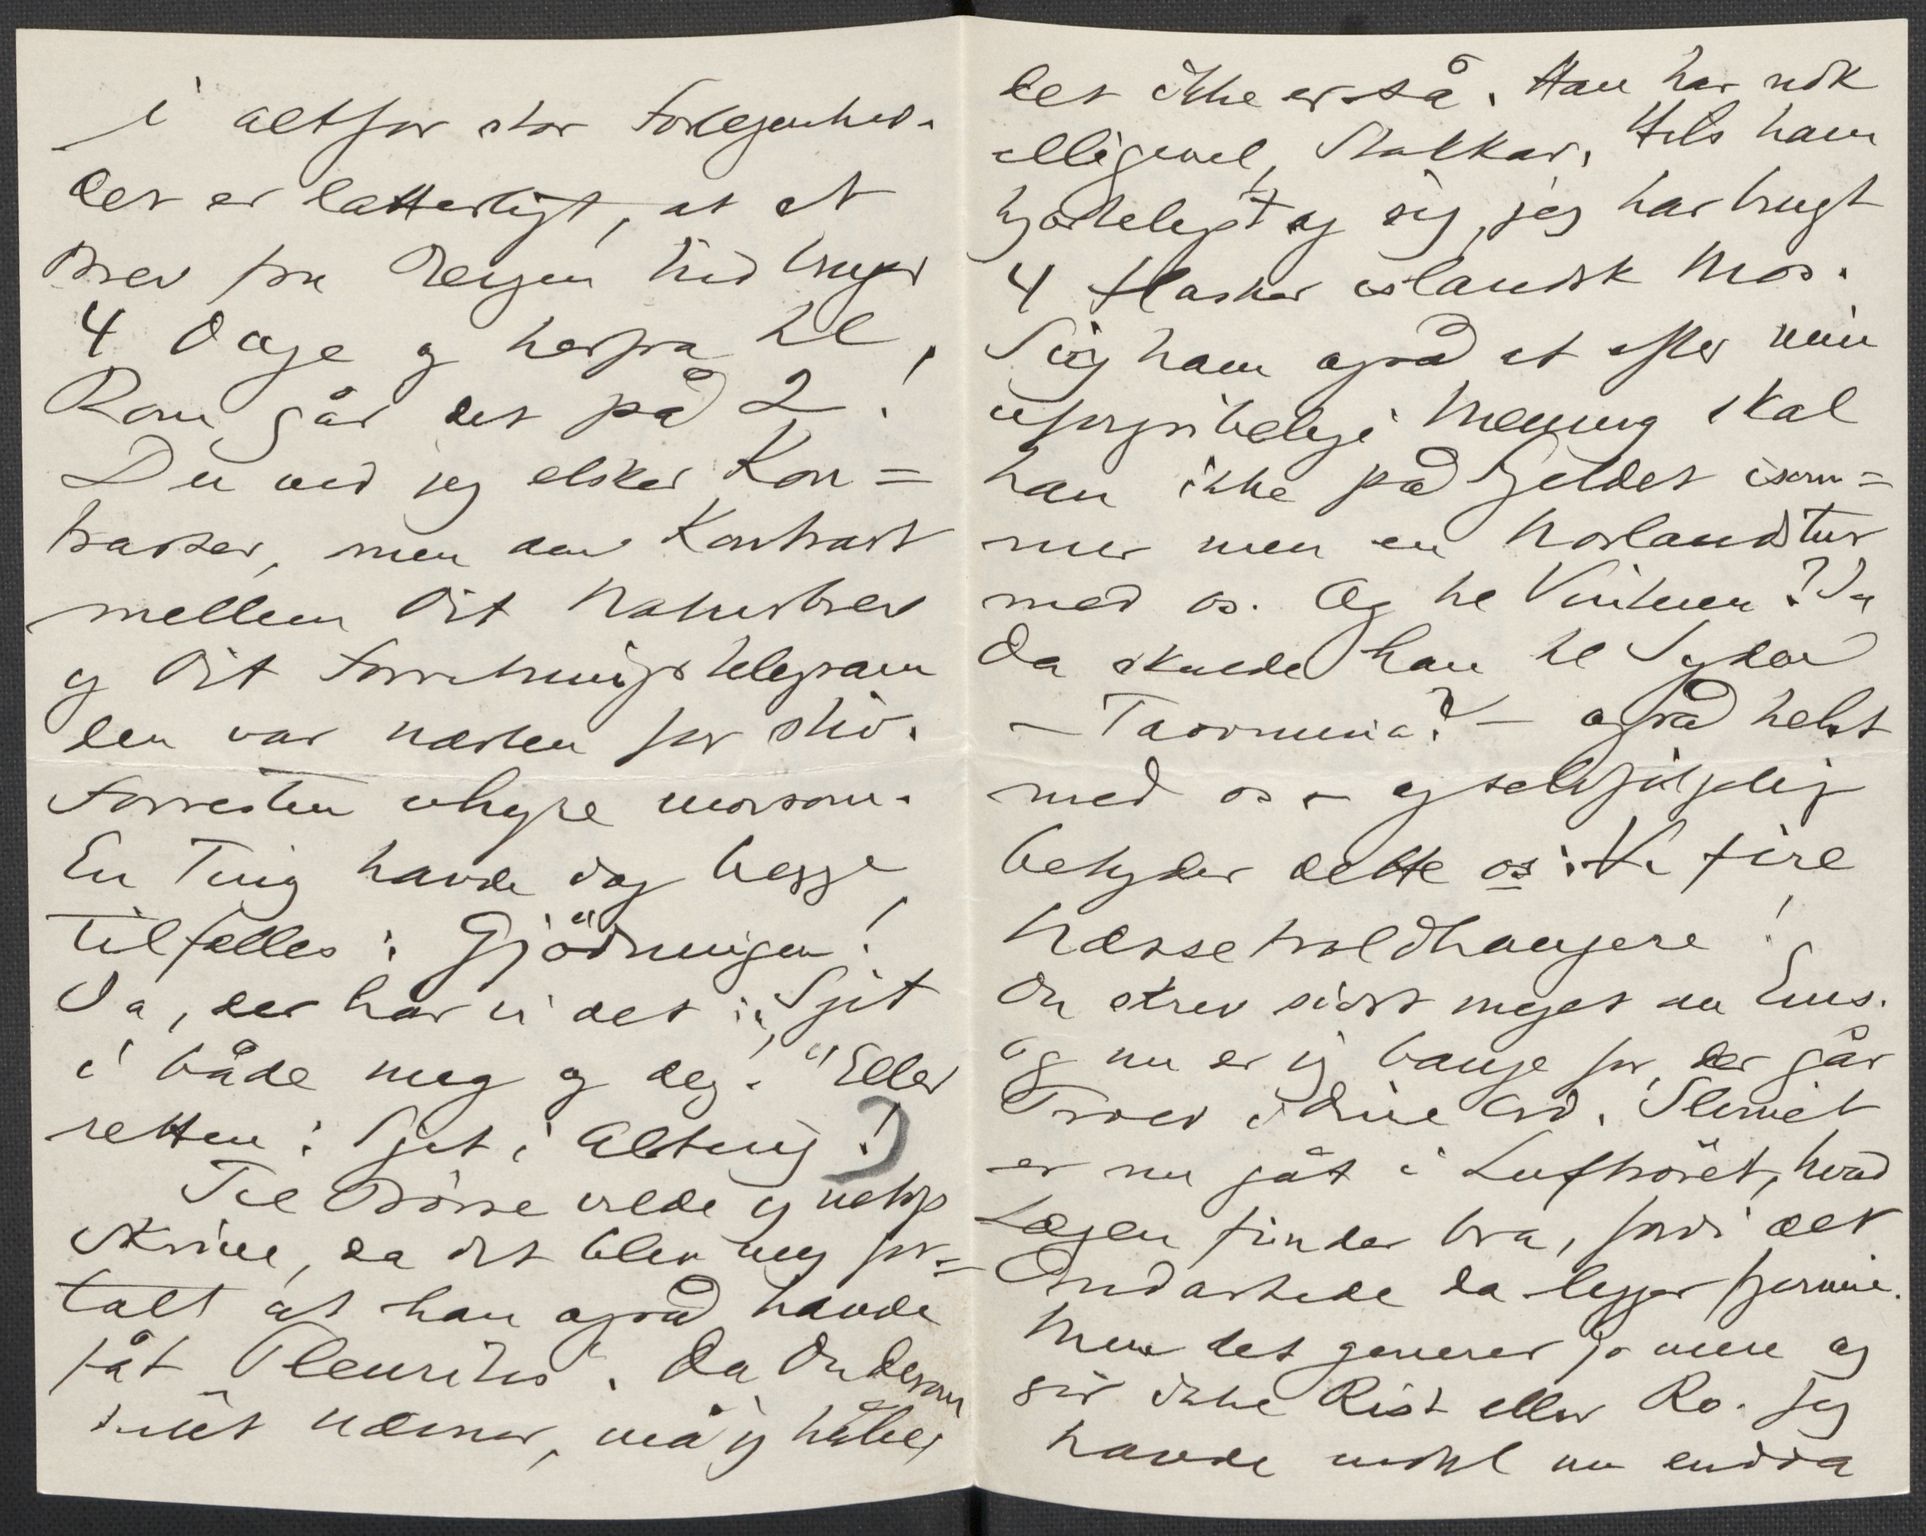 i altfor stor Forlegenhed.
Det er latterligt, at et
Brev fra Bergen hid bruger
4 Dage og herfra til
Rom går det på 2!
Du ved jeg elsker Kon=
traster, men den Kontrast
mellem Dit Naturbrev
og Dit Forretningstelegram
den var næsten for stiv.
Forresten uhyre morsom.
En Ting havde dog begge
tilfælles: Gjödningen!
Ja, der har vi det: „Sjit
i både meg og deg!" Eller
retten: Sjit i Alting!
Til Börre vilde jeg netop
skrive, da det blev mig for=
talt at han også havde
fåt Pleuritis. Da Du derom
intet nævner, må jeg håbe,
det ikke er så. Han har nok
alligevel, Stakkar. Hils ham
hjerteligst og sig, jeg har brugt
4 Flasker islandsk Mos.
Sig ham også at efter min
uforgribelige Mening skal
han ikke på Fjeldet isom=
mer men en Norlandstur
med os. Og til Vinteren? Ja
da skulde han til Syden
– Taormina? – også helst
med os – og selvfölgelig
betyder dette os: Vi fire
Hæssetroldhaugere!
Du skrev sidst meget om Ems.
Og nu er jeg bange for, der går
Troll i dine Ord. Slimet
er nu gåt i Luftröret, hvad
Lægen finder bra, fordi det
Ondartede da ligger fjernere.
Men det generer jo mere og
gir ikke Rist eller Ro. Jeg
havde nok nu endda